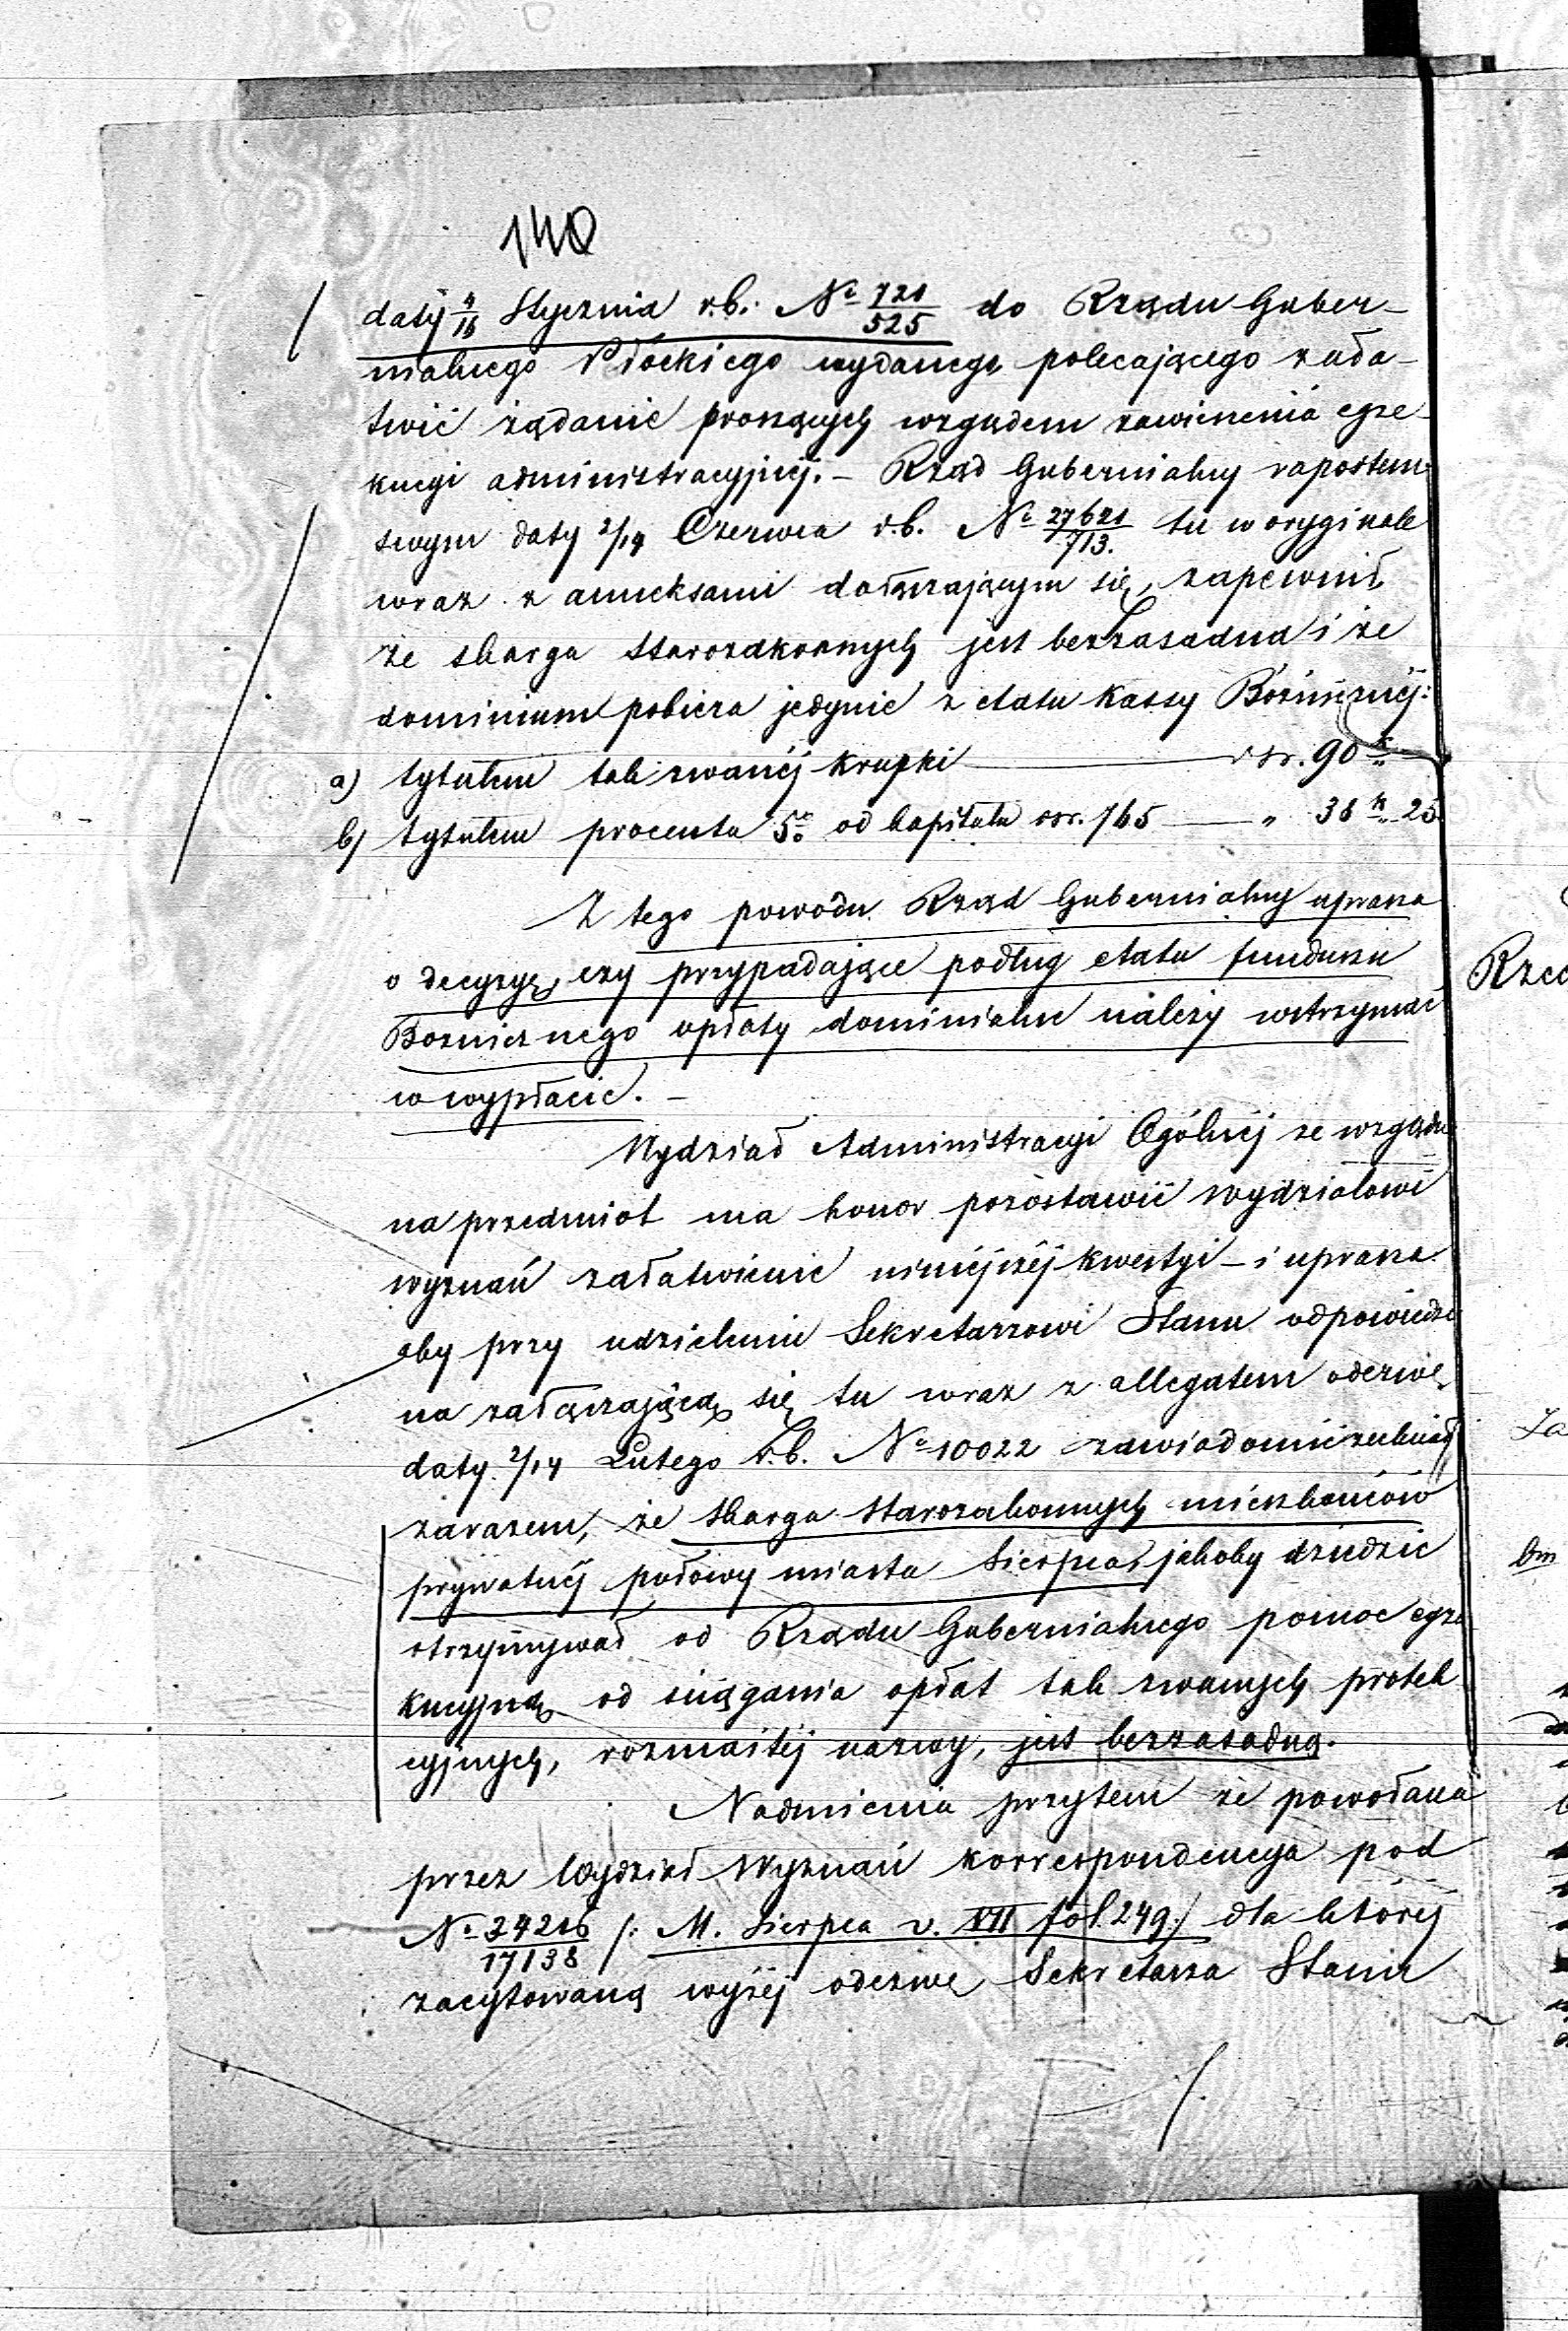 140
daty 4/16 Stycznia r.b. № 721/525 do Rządu Guber-
nialnego Płockiego wydanego polecającego zała-
twić żądanie proszących względem zawieszenia egze-
kucyi administracyjnéj. – Rząd Gubernialny raportem
swym daty 2/14 Czerwca r.b. № 27621/713. tu w oryginale
wraz z annexami dołączającym się, zapewnił
że skarga starozakonnych jest bezzasadna i że
dominium pobiera jedynie z etatu kassy Bóżniczéj:
a) tytułem tak zwanéj krupki — rsr. 90 k „
b) tytułem procentu 5% od kapitału rsr. 765 — „ 38 k 25
Z tego powodu Rząd Gubernialny uprasza
o decyzyę, czy przypadające podług etatu funduszu
Bożnicznego opłaty dominialne należy wstrzymać
w wypłacie. –
Wydział Administracyi Ogólnéj ze względu
na przedmiot ma honor pozostawić wydziałowi
wyznań załatwienie niniéjszéj kwestyi – i uprasza
aby przy udzieleniu Sekretarzowi Stanu odpowiedzi
na załączającą się tu wraz z allegatem odezwę
daty 2/14 Lutego r.b. № 10022 zawiadomić zechciał
zarazem, że skarga starozakonnych mieszkańców
prywatnéj połowy miasta Sierpca, jakoby dziedzic
otrzymywał od Rządu Gubernialnego pomoc egze
kucyjną od ściągania opłat tak zwanych protek
cyjnych, rozmaitéj nazwy, jest bezzasadną.
Nadmienia przytem że powołana
przez Wydział Wyznań korrespondencya pod
№ 34216/17138 /: M. Sierpca v. VII fol. 249 :/ dla któréj
zacytowaną wyżéj odezwę Sekretarza Stanu